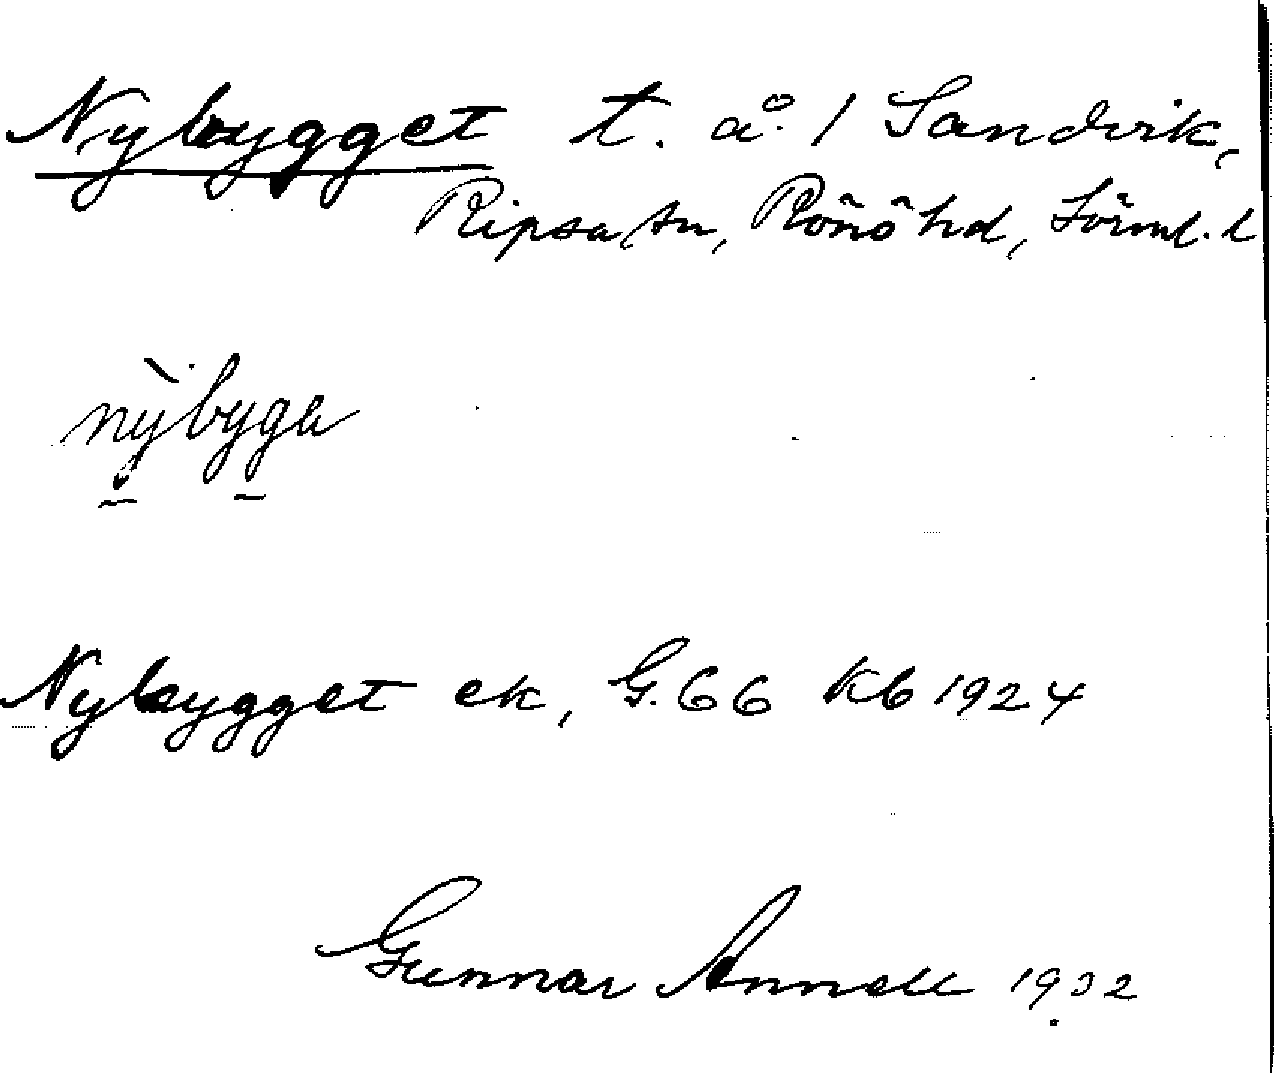 Nybygget t. å. 1 Sandvik,
Ripsa sn, Rönö hd, Sörml. l
nỳbyga
Nybygget ek, G. 66 Kb 1924
Gunnar Annell 1932